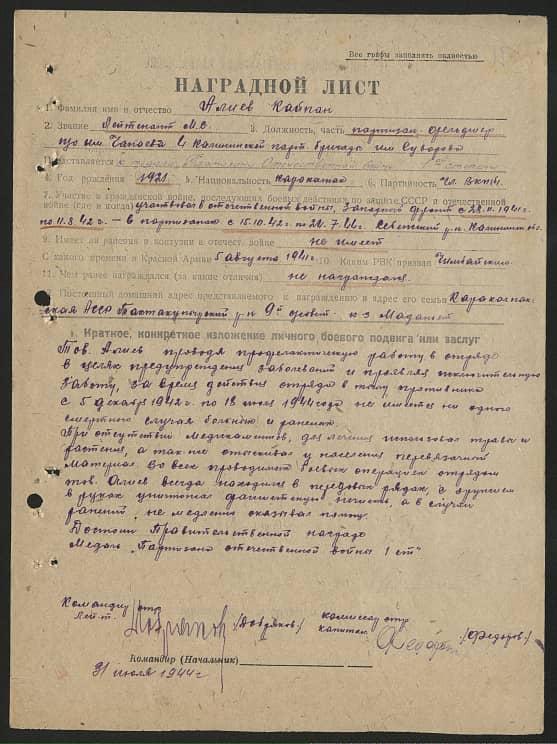 Все графы заполнять полностью
НАГРАДНОЙ ЛИСТ
1. Фамилия имя и отчество Алиев Каипан
2. Звание Лейтенант М.С. 3. Должность, часть партизан-фельдшер
п/о им. Чапаева 4 Калининской парт. бригады им. Суворова
Представляется к медали "Партизан Отечественной войны" 1ой степени
4. Год рождения 1921 5. Национальность Каракалпак 6. Партийность чл. ВКП/б.
7. Участие в гражданской войне, последующих боевых действиях по защите СССР и отечественной
войне (где и когда) участвовал в отечественной войны, Западной фронт с 22.11.1941г.
по 11.8.42 г. – в партизанах с 15.10.42 г. по 22.7.44 г. р-н Калининск. обл.
9. Имеет ли ранения и контузии в отечест. войне не имеет
С какого времени в Красной Армии 5 августа 1941 г. 10. Каким РВК призван Чимбайским
11. Чем ранее награждался (за какие отличия) не награждался.
Постоянный домашний адрес представляемого к награждению и адрес его семьи Каракалпак-
ская АССР р-н 9й к-з Маданият
1. Краткое, конкретное изложение личного боевого подвига или заслуг
Тов. Алиев проводя профилактическую работу в отряде
в целях предупреждения заболеваний и проявляя исключительную
заботу, за время действия отряда в тылу противника
с 5 декабря 1942 г. по 18 июля 1944 года не имеется ни одного
смертного случая больных и раненых.
При отсутствии медикаментов, для лечения использовал травы и
растения, а так-же отыскивал у населения перевязочной
материал. Во всех проводимых боевых операциях отрядом
тов. Алиев всегда находился в передовых рядах, с оружием
в руках уничтожал фашистскую нечисть, а в случаи
ранений, не медленно оказывал помощь.
Достоин Правительственной награды
Медаль "Партизана отечественной войны 1 ст"
Командир отр.
Лей-т.
/Добряков/
комиссар отр.
капитан
/Федоров/
Командир (Начальник)
31 июля 1944 г.